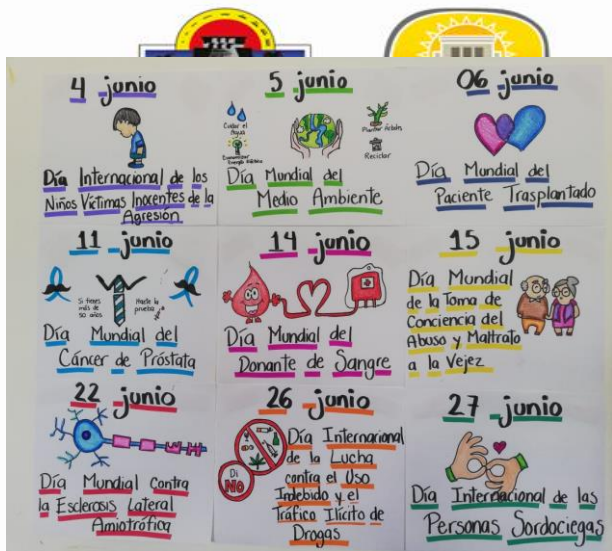 4 junio
Día Internacional de los
Niños Víctimas Inocentes de la
Agresión
5 junio
Cuidar el
Agua
Economizar
Energía Eléctrica
Plantar Árboles
Reciclar
Día Mundial del
Medio Ambiente
06 junio
Día Mundial del
Paciente Trasplantado
11 junio
Si tienes
más de
50 años
Hazte la
prueba
Día Mundial del
Cáncer de Próstata
14 junio
Día Mundial del
Donante de Sangre
15 junio
Día Mundial
de la Toma de
Conciencia del
Abuso y Maltrato
a la Vejez
22 junio
Día Mundial Contra
la Esclerosis Lateral
Amiotrófica
26 junio
Di
No
Día Internacional
de la Lucha
contra el Uso
Indebido y el
Tráfico Ilícito de
Drogas
27 junio
Día Internacional de las
Personas Sordociegas